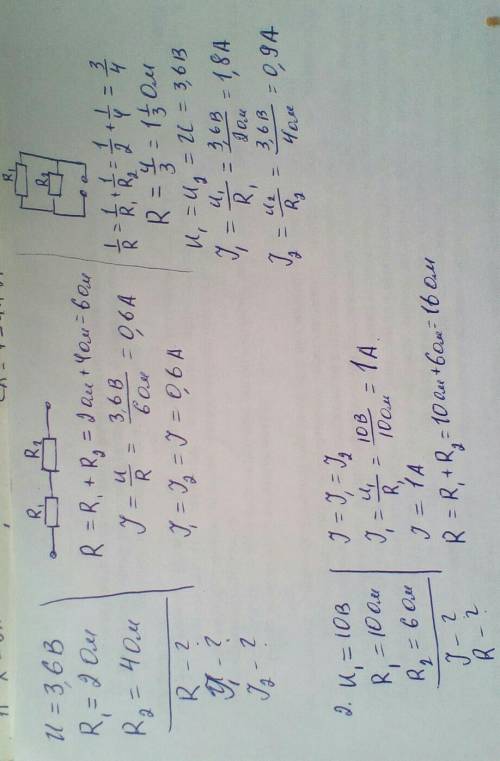 U = 3,6В
R₁ = 2 Ом
R₂ = 4 Ом
R - ?
I₁ - ?
I₂ - ?
R₁ R₂
R = R₁ + R₂ = 2 Ом + 4 Ом = 6 Ом
I = U/R = 3,6В/6 Ом = 0,6 А
I₁ = I₂ = I = 0,6 А
R₁
R₂
1/R = 1/R₁ + 1/R₂ = 1/2 + 1/4 = 3/4
R = 4/3 = 1 1/3 Ом
U₁ = U₂ = U = 3,6В
I₁ = U₁/R₁ = 3,6В/2 Ом = 1,8 А
I₂ = U₂/R₂ = 3,6В/4 Ом = 0,9 А
2. U₁ = 10В
R₁ = 10 Ом
R₂ = 6 Ом
I - ?
R - ?
I = I₁ = I₂
I₁ = U₁/R₁ = 10В/10 Ом = 1А.
I = 1А
R = R₁ + R₂ = 10 Ом + 6 Ом = 16 Ом